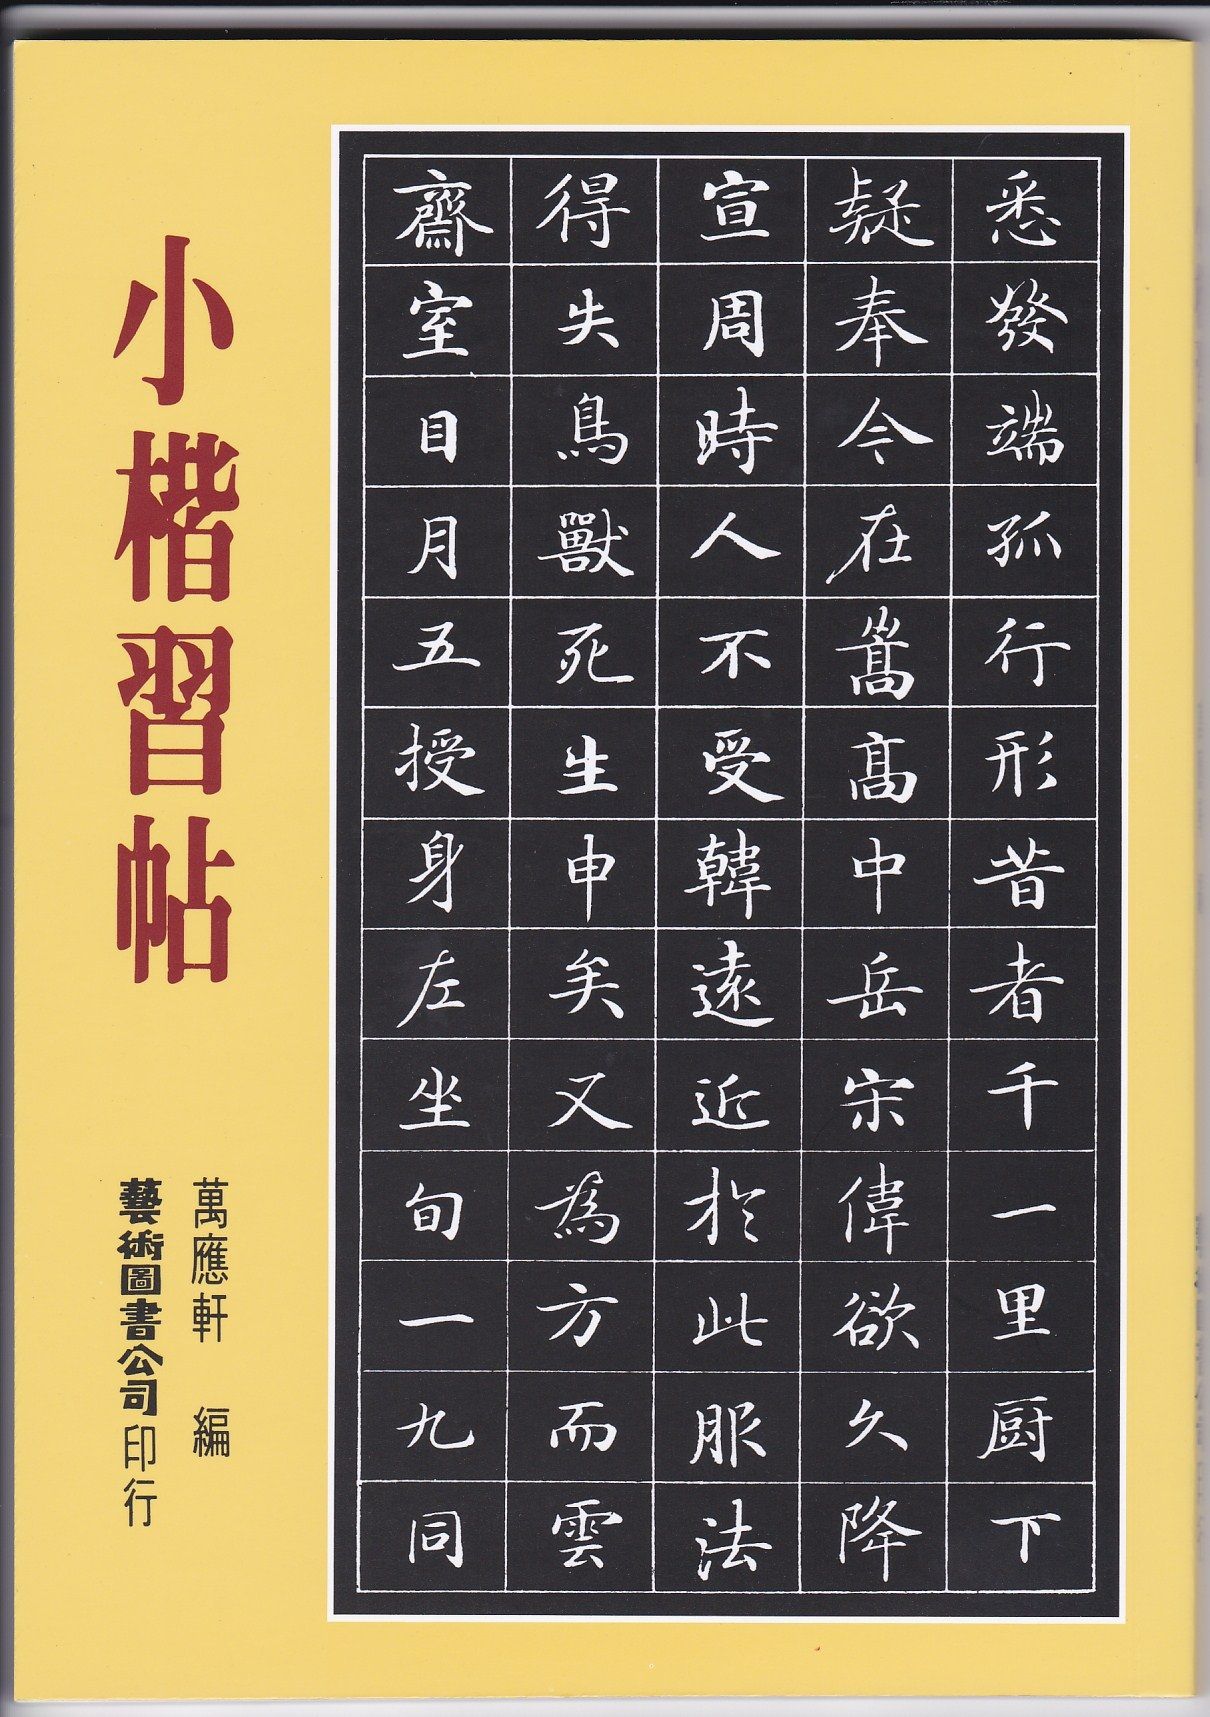 悉發端孤行形昔者千一里厨下
疑奉今在嵩髙中岳宋偉欲久降
宣周時人不受韓遠近於此服法
得失鳥獸死生申矣又為方而雲
齋室目月五授身左坐旬一九同
小楷習帖
萬應軒 編
藝術圖書公司印行